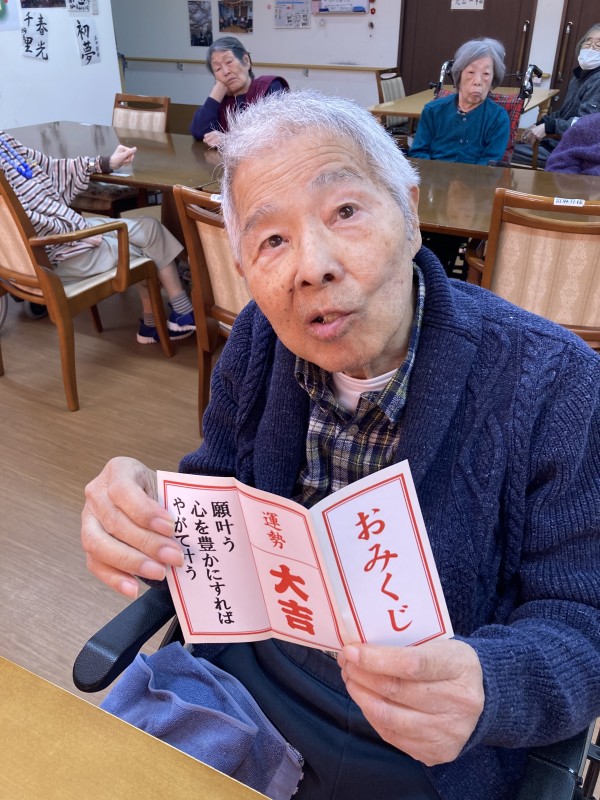 千里
春光
初夢
願叶う
心を豊かにすれば
やがて叶う
運勢
大吉
おみくじ